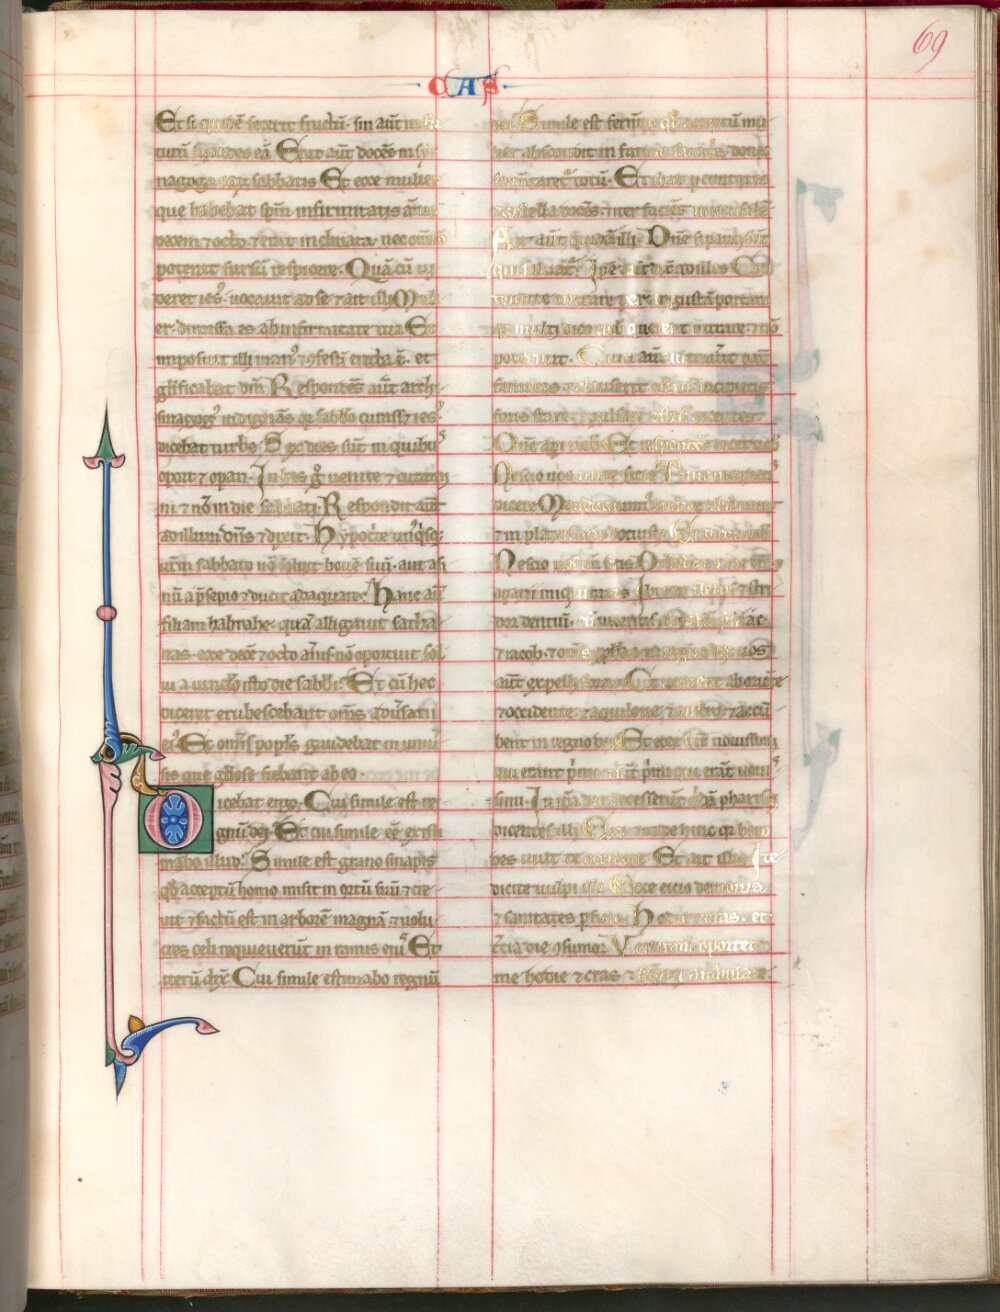 69
CAS
Et si quidē fecerit fructū· sin aūt in fu
turū succides eā Erat aūt docēs in sy
nagoga eorū sabbatis Et ecce mulier
que habebat spm̄ infirmitatis ānis
decem ⁊ octo· ⁊ erat inclinata· nec omīo
poterat sursū respicere· Quā cū vi
deret ies⁹· uocauit ad se ⁊ ait illi Muli
er· dimissa es ab infirmitate tua Et
imposuit illi man⁹ ⁊ ꝯfestī erecta ē· et
gl̄ificabat dm̄ Respondēs aūt archi
sinagog⁹ indignās qr sabb̄o curass; ies⁹
dicebat turbe· Sex dies sūt in quibus
oport; opari· In his g̊ uenite ⁊ curami
ni ⁊ nō in die sabbati· Respondit aūt
ad illum dn̄s ⁊ dixit· Hypocͥte un⁹qͥsq;
ur̄m sabbato nō soluit bouē suū· aut asi
nū a p̄sepio ⁊ ducit adaquare· Hanc aūt
filiam habrahe· quā alligauit satha
nas· ecce decē ⁊ octo ānis· nō oportuit sol
ui a uincl̄o isto die sabb̄i· Et cū hec
diceret erubescebant om̄s aduersarii
ei⁹ Et omīs popl̄s gaudebat in uniu̾
sis que gl̄iose fiebant ab eo·
Dicebat ergo· Cui simile est re
gnū dei· Et cui simile eē existi
mabo illud· Simile est grano sinapis
qd̄ acceptū homo misit in ortū suū· ⁊ cre
uit ⁊ factū est in arborē magnā· ⁊ uolu
cres celi requieuerūt in ramis eius Et
iterū dix̄· Cui simile estimabo regnū
dei· Simile est fermēto qd̄ acceptū mu
lier abscondit in farine sata tria donec
fermentaret᷑ totū· Et ibat p ciuitates
⁊ castella docēs· ⁊ iter faciēs in ierusalē
Ait aūt quidā illi· Dn̄e si pauci sūt
qui saluāt᷑· Ipe aūt dix̄ ad illos Con
tendite intrare per angustā portam
qr multi dico uob̄ querent intrare· ⁊ nō
poterunt· Cum aūt intrauit pat̄
familias ⁊ clauserit ostiū· incipietis
foris stare ⁊ pulsare ostiū dicentes·
Dn̄e aperi nob̄ Et respondens dicet uob̄
Nescio uos unde sitis Tunc incipietis
dicere Manducauim⁹ corā te ⁊ bibimus
⁊ in plateis nr̄is docuisti· Et dicet uob̄
Nescio uos un̄ sitis Discedite a me om̄s
opari iniquitatis Ibi erit fletus ⁊ stri
dor dentiū· cū uideritis abraham ⁊ isaac·
⁊ iacob· ⁊ om̄s prophetas in regno dei· uos
aūt expelli foras Et uenient ab oriēte
⁊ occidente· ⁊ aquilone· ⁊ austro· ⁊ accū
bent in regno dei Et ecce sūt nouissimi
qui erant pͥmi· ⁊ sūt pͥmi qui erāt noui
simi· In ip̄a die accesserūt qͥdā pharisei
dicentes illi Exi ⁊ uade hinc qr hero
des uult te occidere Et ait illis Ite
dicite uulpi illi Ecce eicio demonia
⁊ sanitates pficio Hodie ⁊ cras· et
tͥcia die ꝯsumor Verumtn̄ oportet
me hodie ⁊ cras ⁊ sequenti ambulare·